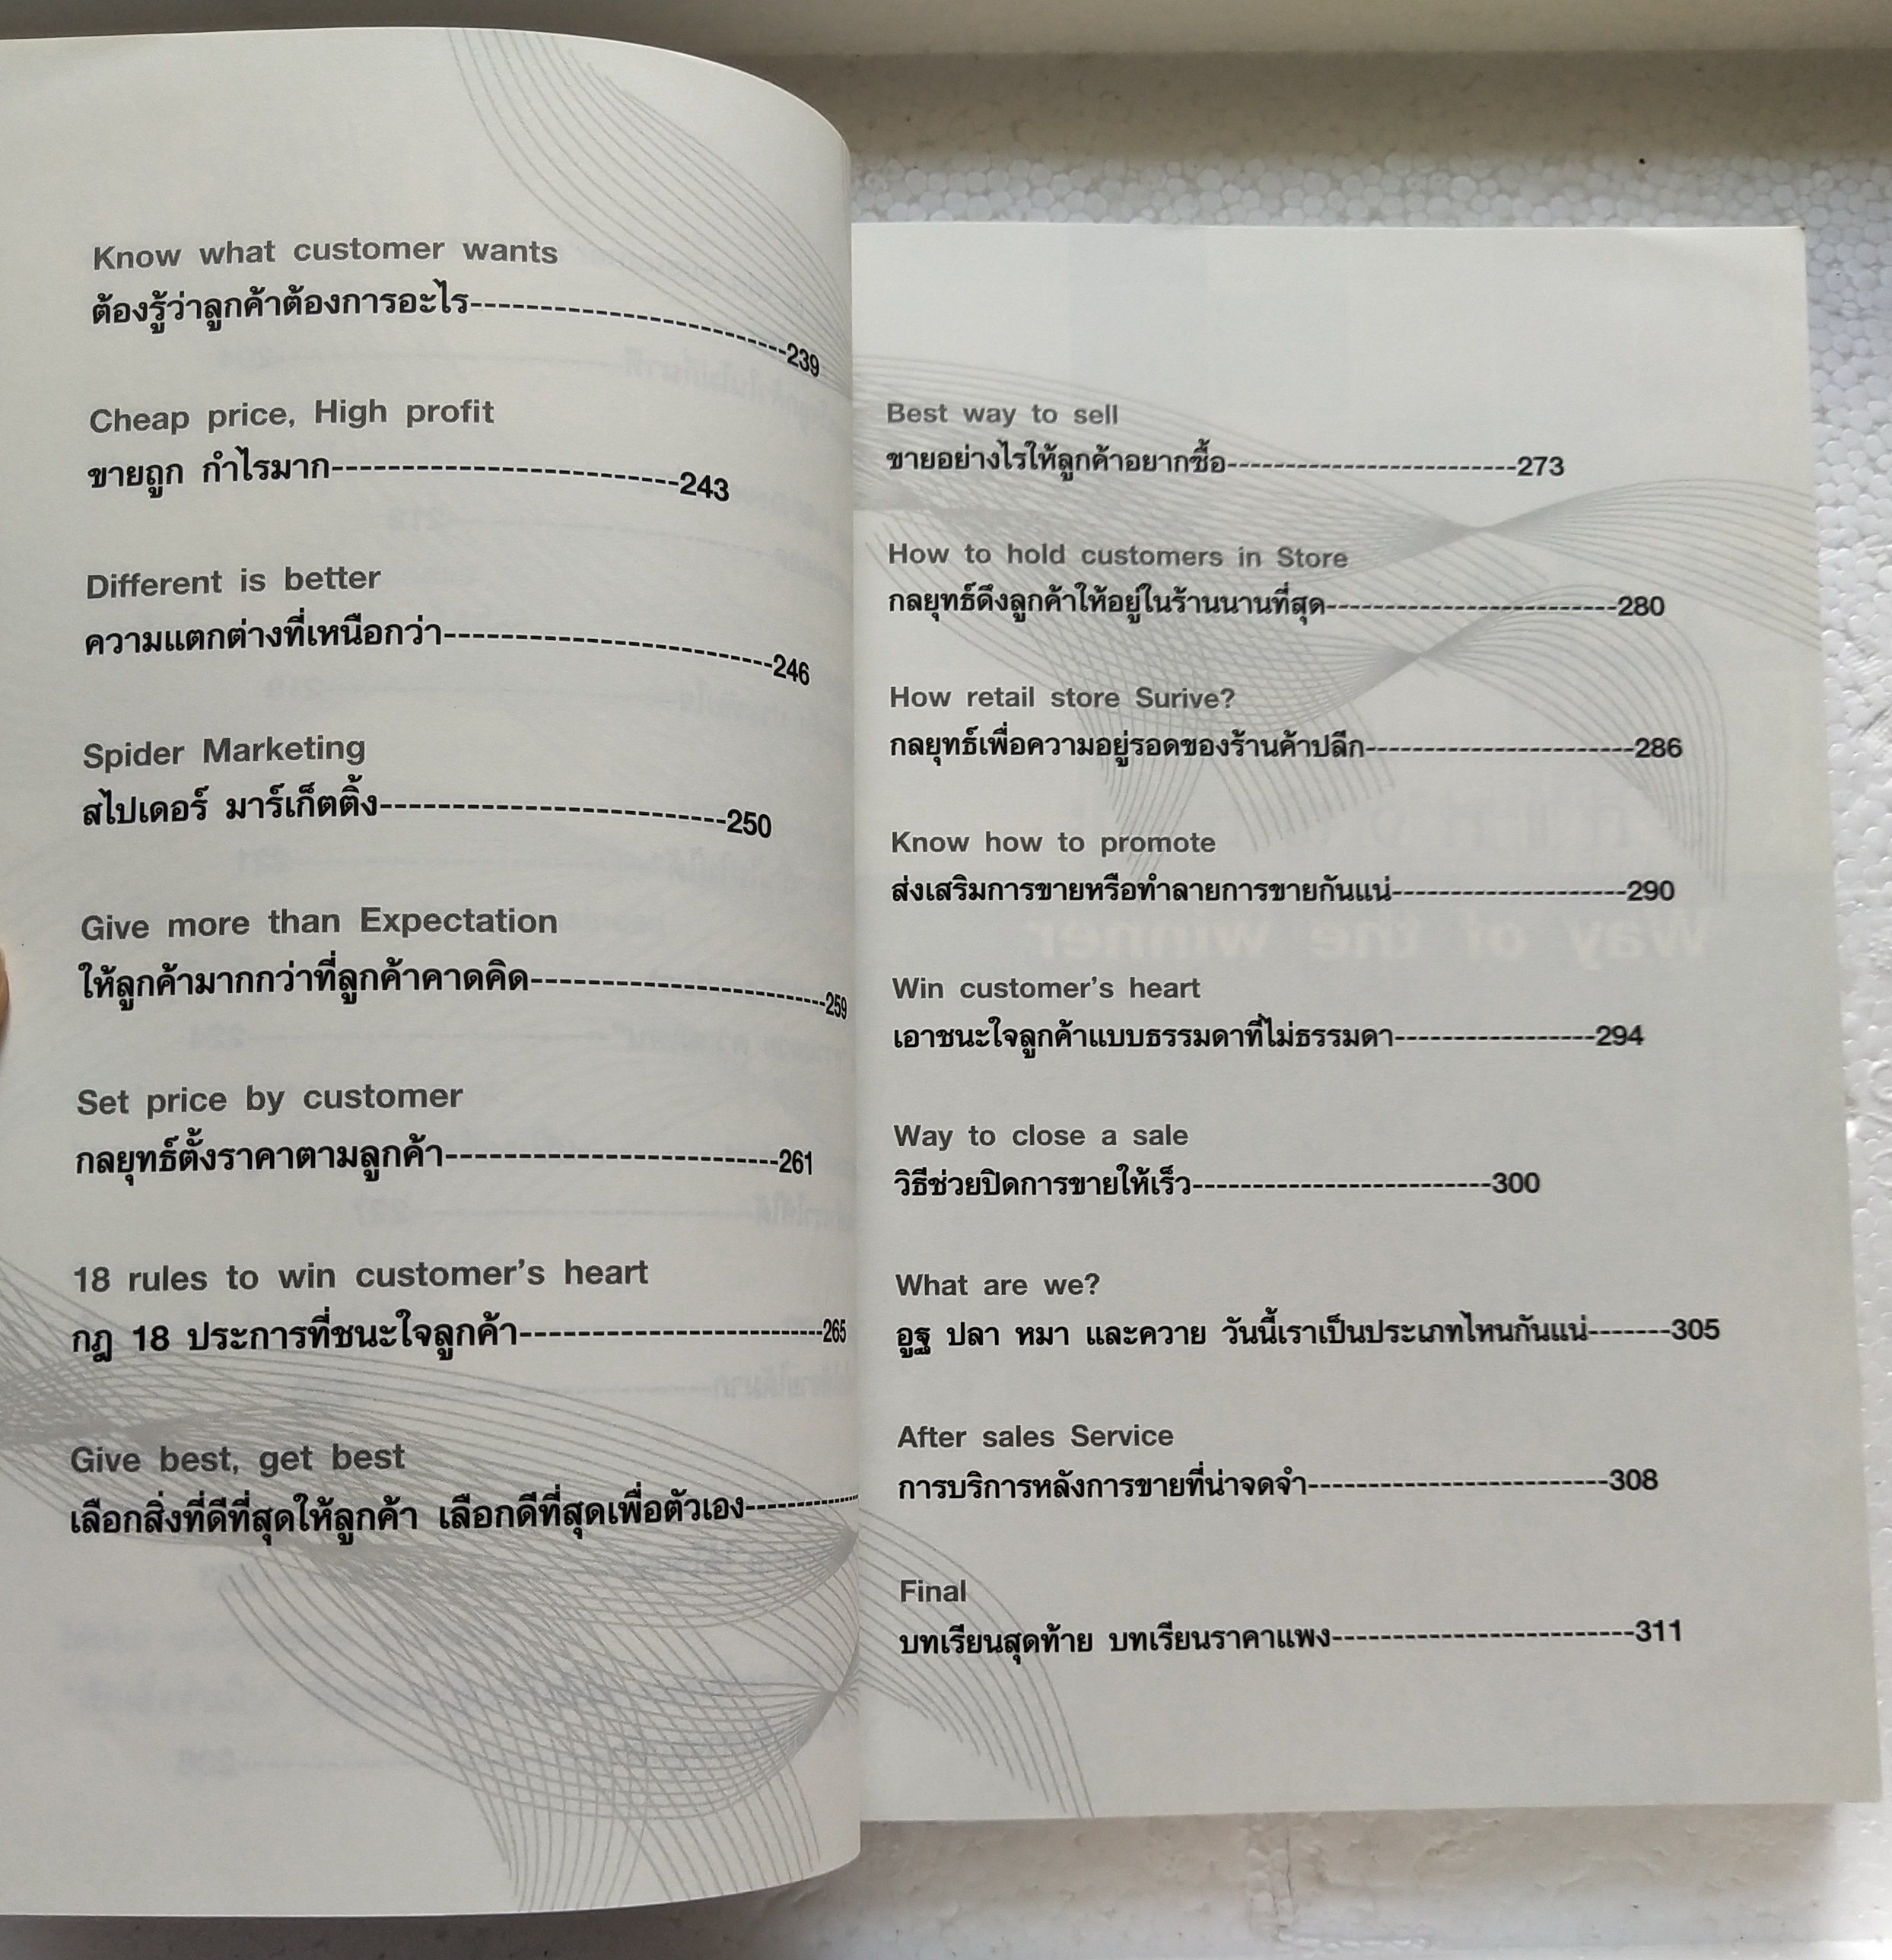 Know what customer wants
ต้องรู้ว่าลูกค้าต้องการอะไร----------------------239
Cheap price, High profit
ขายถูก กำไรมาก------------------------243
Different is better
ความแตกต่างที่เหนือกว่า-----------------------246
Spider Marketing
สไปเดอร์ มาร์เก็ตติ้ง------------------------250
Give more than Expectation
ให้ลูกค้ามากกว่าที่ลูกค้าคาดคิด-----------------------259
Set price by customer
กลยุทธ์ตั้งราคาตามลูกค้า------------------------261
18 rules to win customer's heart
กฎ 18 ประการที่ชนะใจลูกค้า------------------------265
Give best, get best
เลือกสิ่งที่ดีที่สุดให้ลูกค้า เลือกดีที่สุดเพื่อตัวเอง-----------
Best way to sell
ขายอย่างไรให้ลูกค้าอยากซื้อ-------------------------273
How to hold customers in Store
กลยุทธ์ดึงลูกค้าให้อยู่ในร้านนานที่สุด-------------------------280
How retail store Surive?
กลยุทธ์เพื่อความอยู่รอดของร้านค้าปลีก-----------------------286
Know how to promote
ส่งเสริมการขายหรือทำลายการขายกันแน่--------------------290
Win customer's heart
เอาชนะใจลูกค้าแบบธรรมดาที่ไม่ธรรมดา-----------------294
Way to close a sale
วิธีช่วยปิดการขายให้เร็ว-------------------------300
What are we?
อูฐ ปลา หมา และควาย วันนี้เราเป็นประเภทไหนกันแน่-------305
After sales Service
การบริการหลังการขายที่น่าจดจำ-------------------------308
Final
บทเรียนสุดท้าย บทเรียนราคาแพง-------------------------311